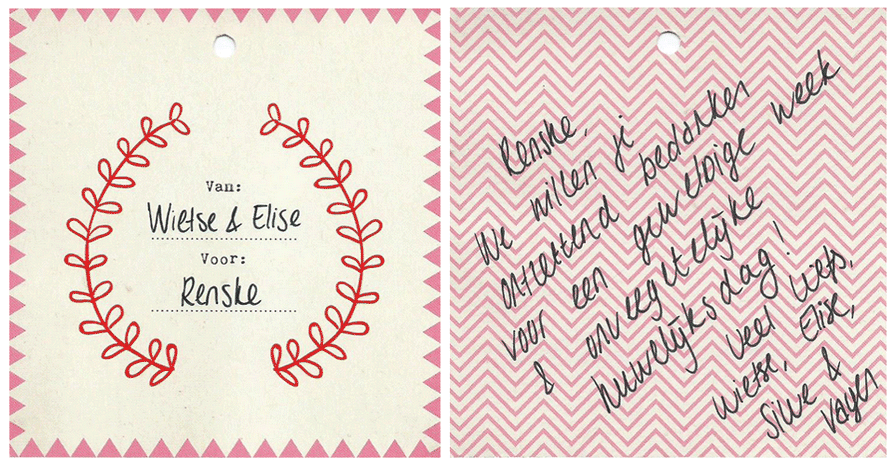 Van:
Wietse & Elise
Voor:
Renske
Renske,
We willen je
ontzettend bedanken
voor een geweldige week
& onvergetelijke
huwelijksdag!
Veel liefs,
Wietse, Elise,
&